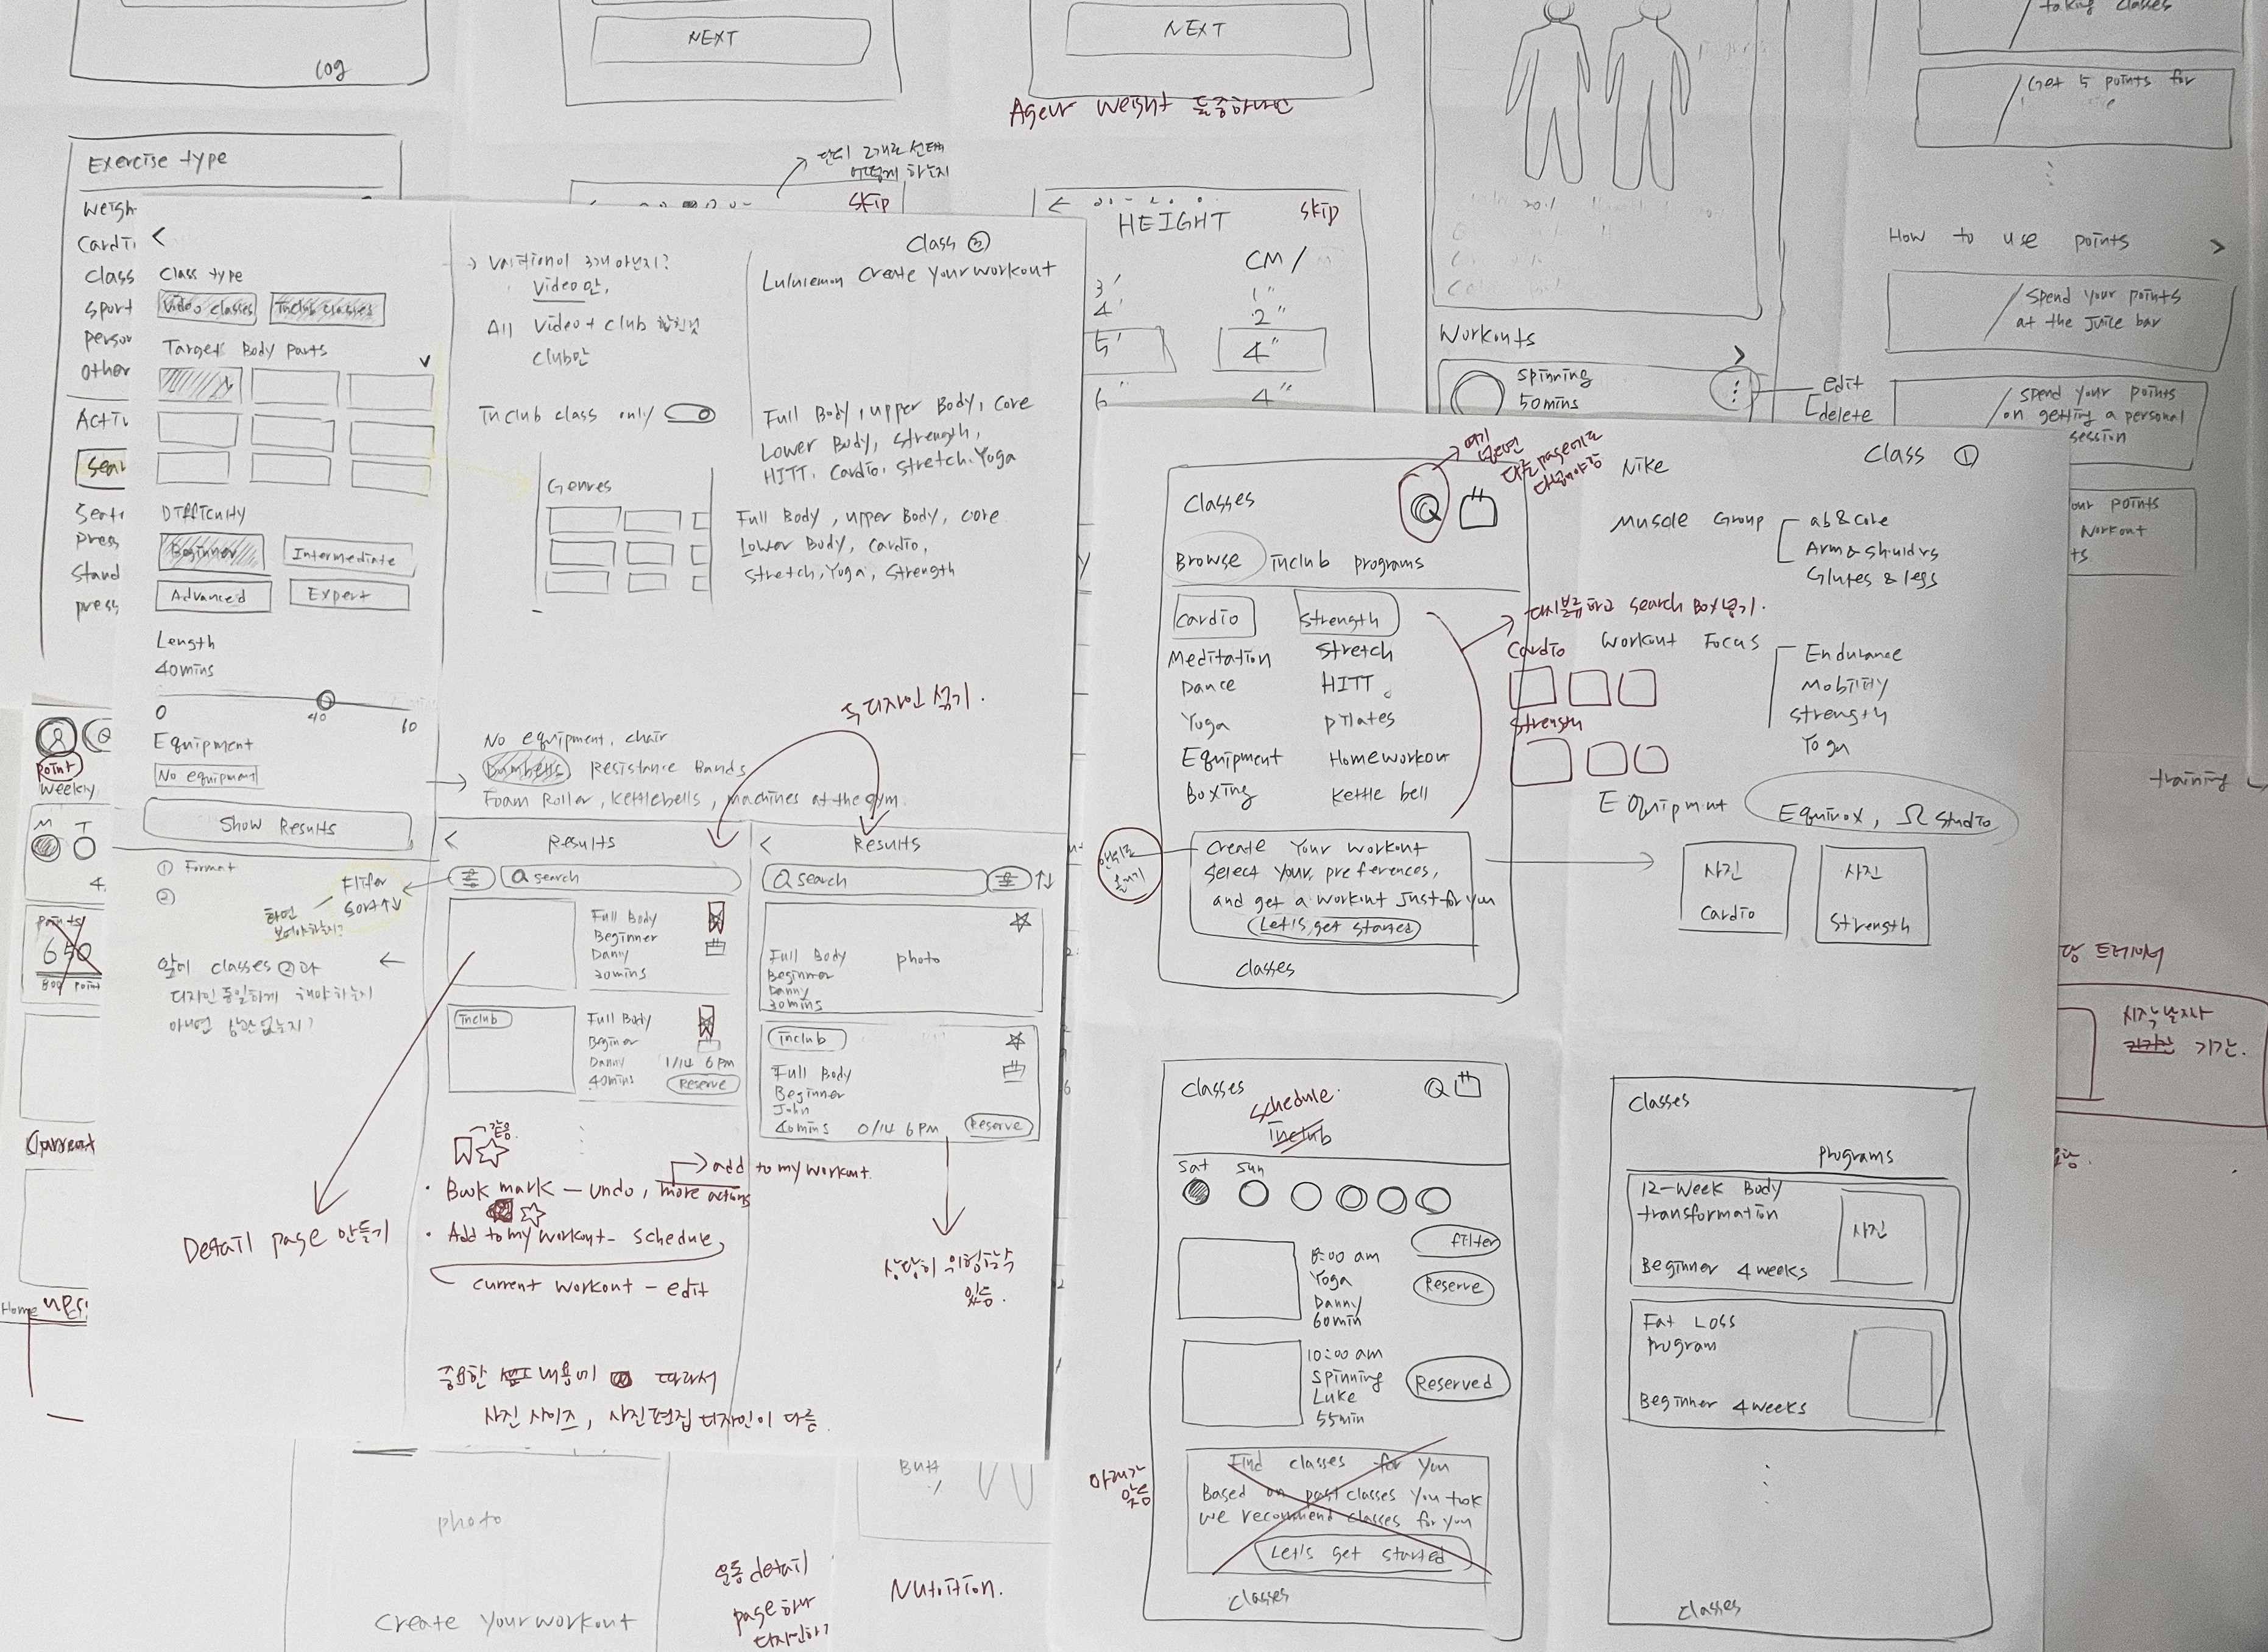 log
NEXT
NEXT
Exercise type
Weigh
Cardi
Class
Sport
Person
Other
Acti
Sear
press
Stand
press
<
Class type
Video classes
Inclub classes
Target Body parts
Difficulty
Beginner
Intermediate
Advanced
Expert
Length
40mins
0
40
60
Equipment
No equipment
Show Results
① Format
②
Filter
Sort↑↓
화면
보여야하는지?
앞에 classes ②과
디자인 동일하게 해야하는지
아니면 상관없는지?
Class ③
Video만,
All Video + club
club만
Inclub class only
Genres
Lululemon Create Your workout
Full Body, upper Body, core
Lower Body, Strength,
HITT, Cardio, Stretch, Yoga
Full Body, upper Body, core
Lower Body, Cardio,
Stretch, Yoga, Strength
No equipment, chair
Dumbells, Resistance Bands
Foam Roller, Kettlebells, machines at the gym.
두 디자인 섞기.
< Results
search
Full Body
Beginner
Danny
30mins
Inclub
Full Body
Beginer
Danny 1/14 6pm
40mins Reserve
< Results
search
Full Body photo
Beginner
Danny
30mins
Inclub
Full Body
Beginner
John
40mins 0/14 6pm Reserve
같음.
add to my workout.
· Book mark — undo, more actions
· Add to my workout — schedule,
current workout — edit
Detail page 만들기
있음.
중요한 내용에 따라서
사진 사이즈, 사진편집 디자인이 다름.
단위 2개로 선택
어떻게 하는지
Skip
Weight
HEIGHT
Skip
CM /
3' 1"
4' 2"
5' 4"
6" 4"
Workouts >
Spinning
50mins
edit
delete
taking classes
Get 5 points for
How to use points >
Spend your points
at the Juice bar
Spend your points
on getting a personal
session
our points
workout
ts.
training
Class ①
Classes
Browse Inclub programs
Cardio Strength
Meditation Stretch
Dance HITT
Yoga pilates
Equipment Homeworkout
Boxing Kettle bell
Create Your workout
Select your preferences,
and get a workout Just for you
Let's get started
Classes
여기
다른 page에도
Nike
Muscle Group
ab & core
Arm & Shuldrs
Glutes & legs
다시분류하고 search Box넣기.
Cardio
Strength
Workout Focus
Endurance
Mobility
Strength
Yoga
Equipment
Equinox, Ω Studio
사진
Cardio
사진
Strength
Classes
Schedule.
Inclub
Sat Sun
Filter
8:00 am
Yoga
Danny
60min
Reserve
10:00 am
Spinning
Luke
55min
Reserved
Find classes for you
Based on past classes You took
we recommend classes for you
Let's get started
Classes
Classes
programs
12-Week Body
transformation
사진
Beginner 4 weeks
Fat Loss
program
Beginner 4 weeks
Classes
시작날짜
기간.
Point
Weekly
M T
4.
points
650
800 point
Current
Home
photo
Create Your workout
운동 detail
page 하나
디자인하기
Nutrition.